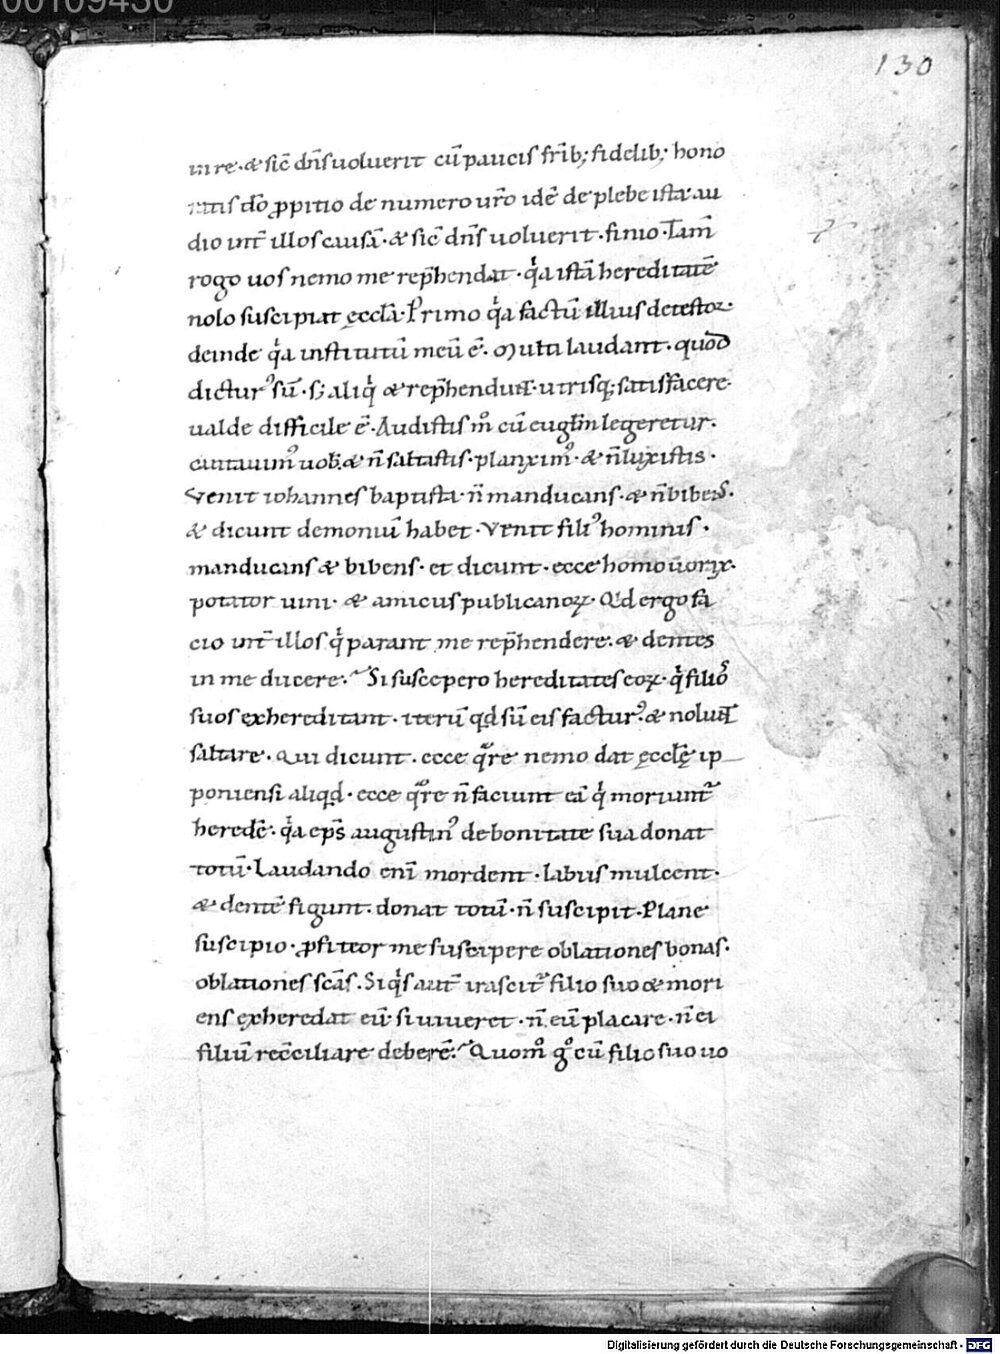 00109430
130
uire· & sic̄ dn̄s uoluerit cū paucis fr̄ib; fidelib; hono
ratis dō p̱pitio de numero ur̄o idē de plebe ista· au
dio int̄ illos causā· & sic̄ dn̄s uoluerit· finio· Tam̄
rogo uos nemo me rep̄hendat· qͥa istā hereditatē
nolo suscipiat ęccla̅· Primo qͥa factū illius detestor·
deinde qͥa institutū meū ē· Multi laudant· quod
dictur᾽ sū· S; aliqͥ & rep̄hendunt· utrisq; satisfacere
ualde difficile ē· Audistis m̊ cū eugl̄m legeretur·
cantauim᾽ uob̄· & n̄ saltastis· planxim᾽· & n̄ luxistis·
Venit iohannes baptista· n̄ manducans· & n̄ bibens·
& dicunt demoniū habet· Venit fili᾽ hominis·
manducans & bibens· et dicunt· ecce homo uorax·
potator uini· & amicus publicanoꝝ· Qd̄ ergo fa
cio int̄ illos qͥ parant me rep̄hendere· & dentes
in me ducere· Si suscepero hereditates eoꝝ· qͥ filios
suos exhereditant· iterū qd̄ sū eis factur᾽· & nolunt
saltare· Qui dicunt· ecce qͣre nemo dat ęcclę̄ ip
poniensi aliqd̄· ecce qͣre n̄ faciunt eā qͥ moriunt᷑
heredē· qͥa ep̄s augustin᾽ de bonitate sua donat
totū· Laudando enī mordent· labiis mulcent·
& dentē figunt· donat totū· n̄ suscipit· Plane
suscipio· ꝓfiteor me suscipere oblationes bonas·
oblationes scās· Si qͥs aut̄ irascit᷑ filio suo & mori
ens exheredat eū· si uiueret· n̄ eū placare· n̄ ei
filiū recc̄iliare deberē· Quom̊ g̊ cū filio suo uo
Digitalisierung gefördert durch die Deutsche Forschungsgemeinschaft · DFG